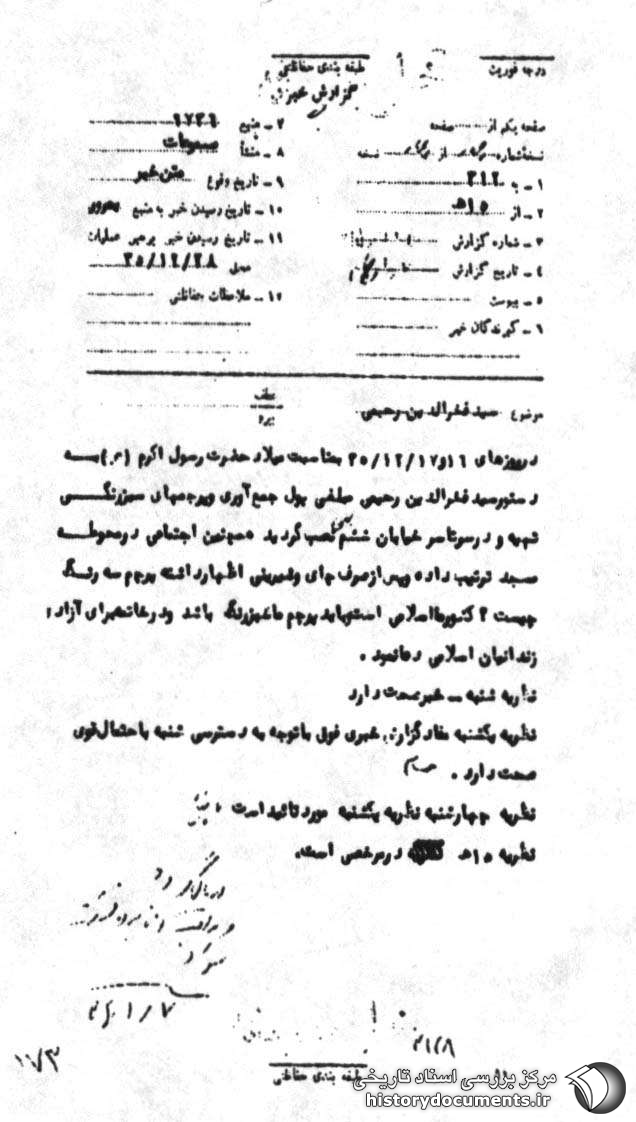 درجه فوریت
طبقه بندی حفاظتی
گزارش خبر
صفحه یکم از صفحه
نسخه شماره از نسخه
۱ - به ۳۱۲
۲ - از ۱۵ هـ
۳ - شماره گزارش
۴ - تاریخ گزارش
۵ - پیوست
۶ - گیرندگان خبر
۷ - منبع ۱۷۳۶
۸ - منشأ مسموعات
۹ - تاریخ وقوع متن خبر
۱۰ - تاریخ رسیدن خبر به منبع
۱۱ - تاریخ رسیدن خبر برهبر عملیات
محل ۳۵/۱۲/۲۸
۱۲ - ملاحظات حفاظتی
موضوع سید فخرالدین رحیمی
عطف
پیرو
در روزهای ۱۶ و ۳۵/۱۲/۱۷ بمناسبت میلاد حضرت رسول اکرم (ص) به
دستور سید فخرالدین رحیمی مبلغی پول جمع آوری و پرچمهای سبزرنگی
تهیه و در سرتاسر خیابان ششم بهمن نصب گردید همچنین اجتماعی در محوطه
مسجد ترتیب داده و پس از صرف چای و شیرینی اظهار داشته پرچم سه رنگ
چیست ؟ کشور ما اسلامی است و باید پرچم ما سبزرنگ باشد و در خاتمه برای آزادی
زندانیان اسلامی دعا نمود .
نظریه شنبه - خبر صحت دارد
نظریه یکشنبه مفاد گزارش خبری فوق با توجه به دسترسی شنبه با احتمال قوی
صحت دارد .
نظریه چهارشنبه نظریه یکشنبه مورد تائید است .
نظریه ۱۵ هـ در مرخصی است .
۱/۷
۳۱۲/۸
۱۷۳
طبقه بندی حفاظتی
مرکز بررسی اسناد تاریخی
historydocuments.ir